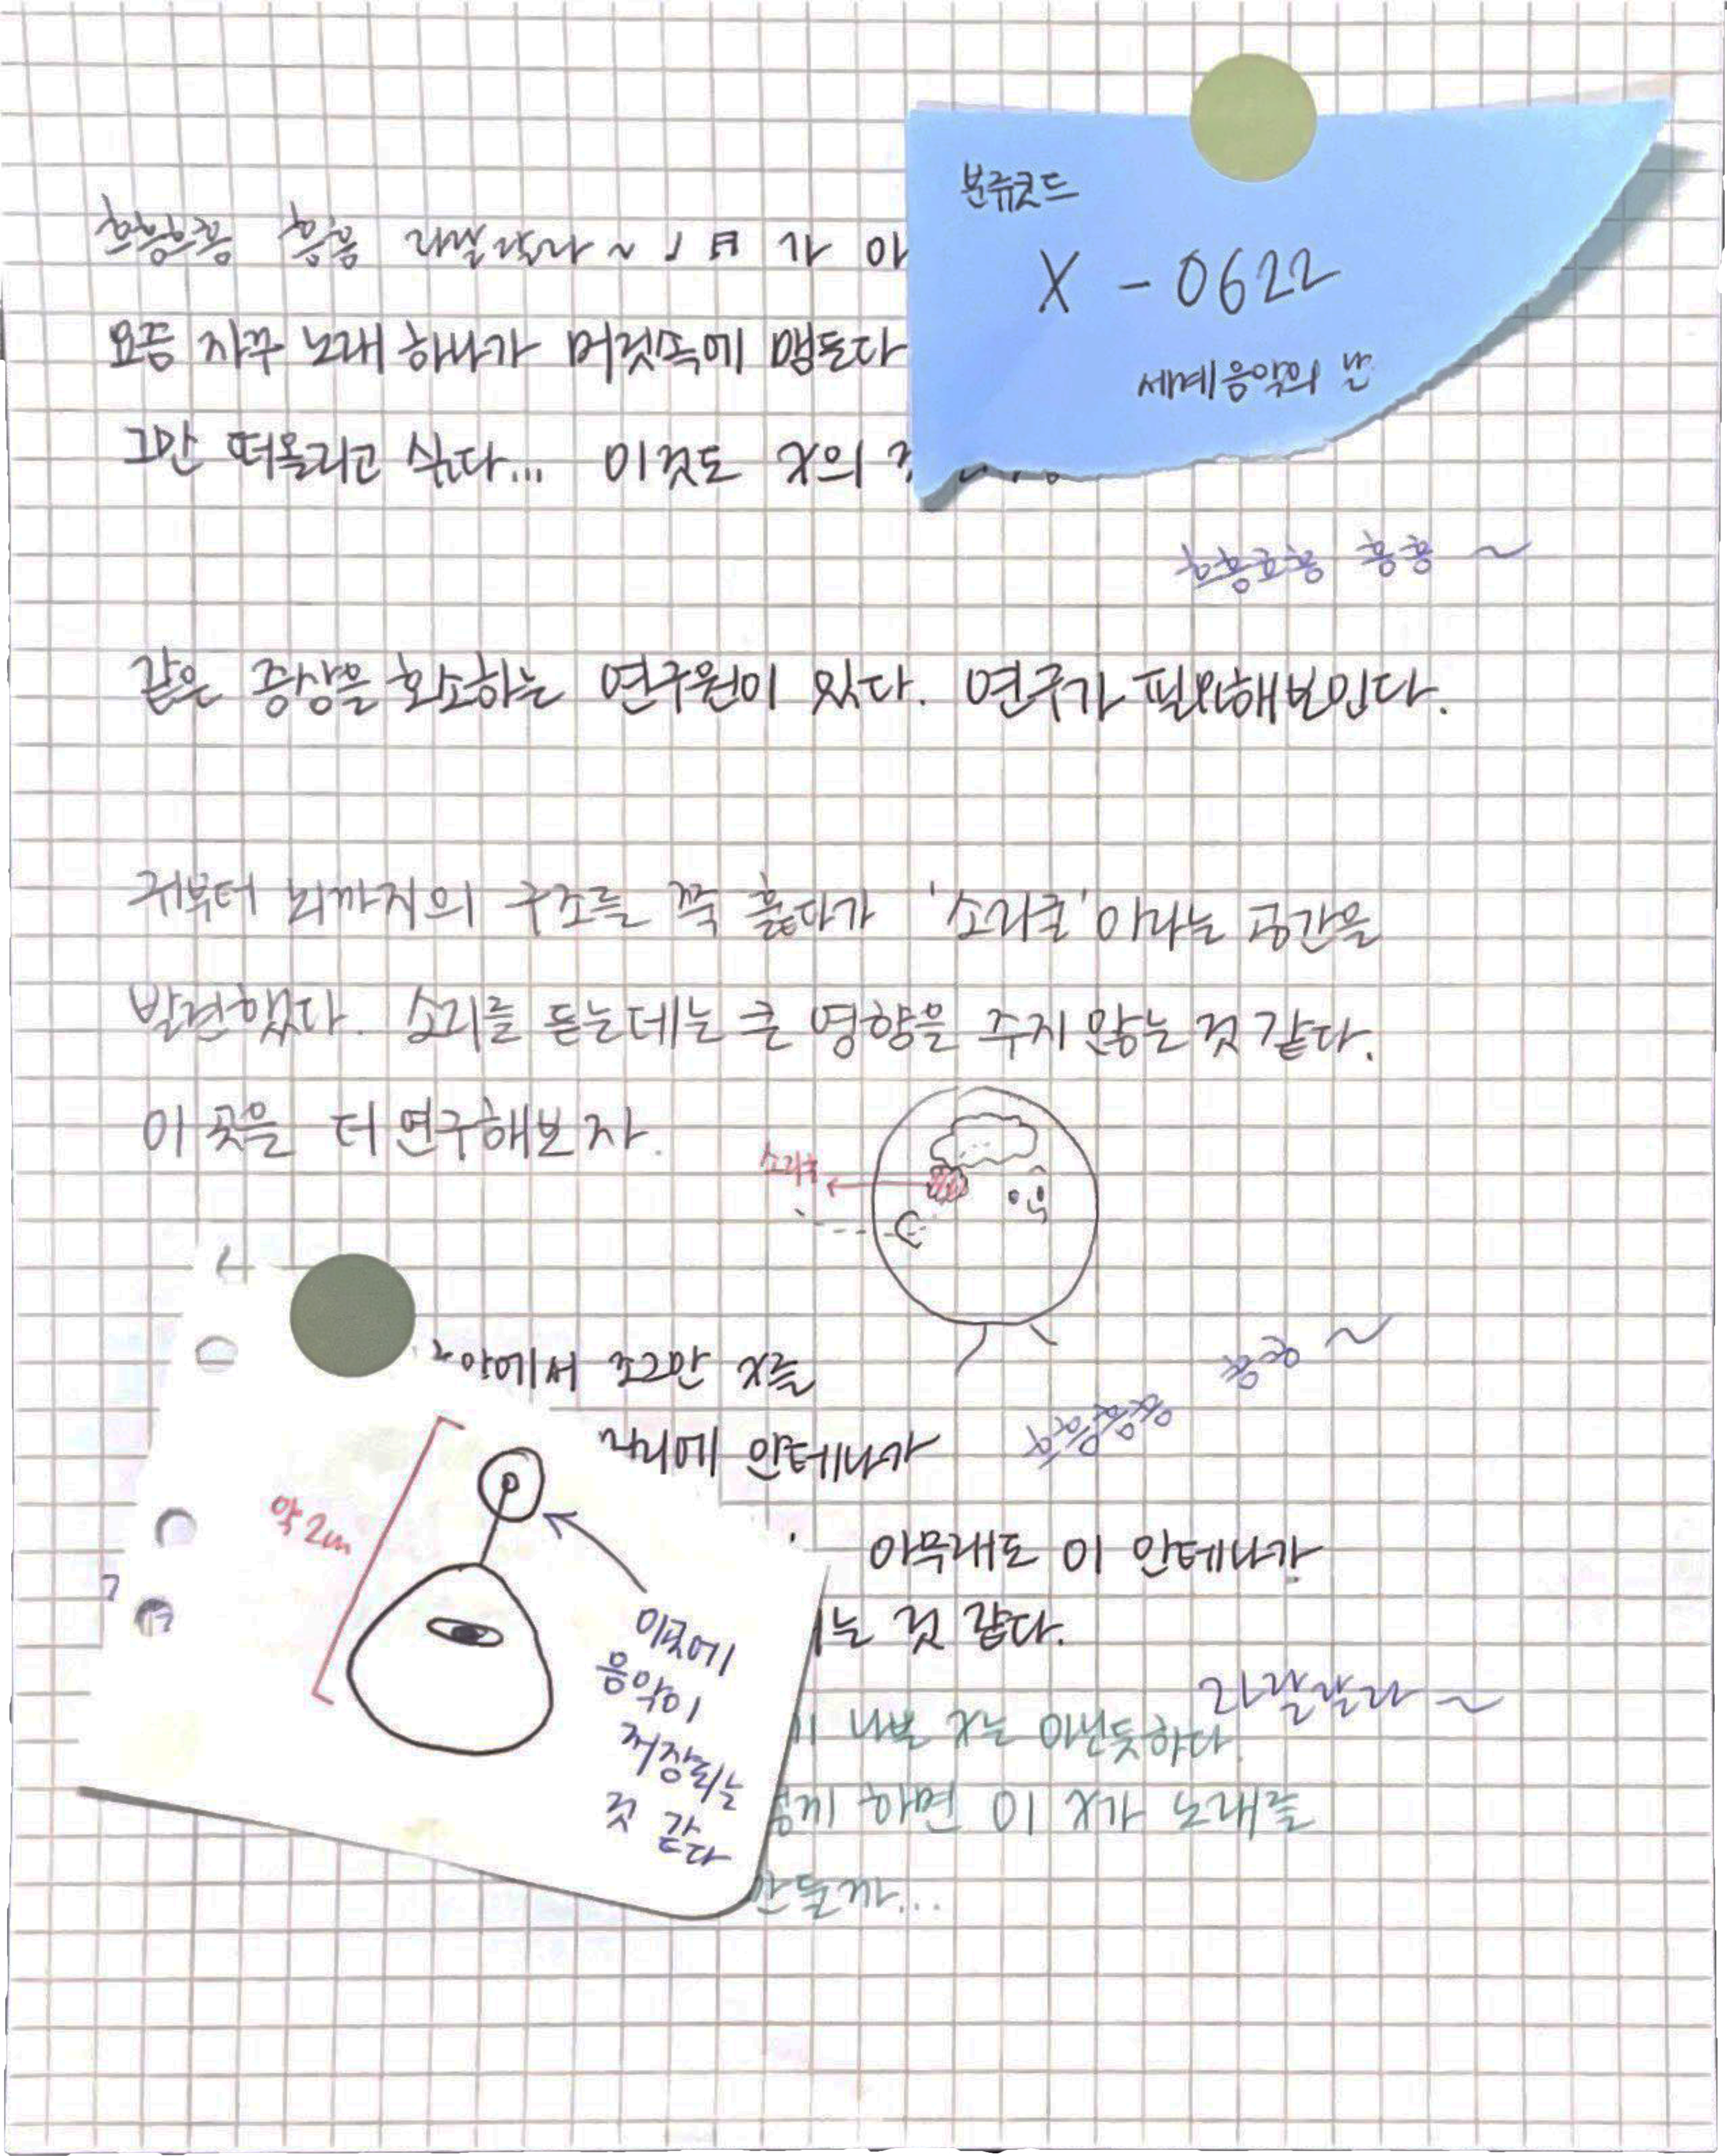 분류코드
X - 0622
세계 음악의 날
요즘 자꾸 노래 하나가 머릿속에 맴돈다
그만 떠올리고 싶다... 이것도 X의
흐흥흐흥 흥흥 ~
같은 증상을 호소하는 연구원이 있다. 연구가 필요해보인다.
귀부터 뇌까지의 구조를 쭉 훑다가 '소리굴' 이라는 공간을
발견했다. 소리를 듣는데는 큰 영향을 주지 않는 것 같다.
이 곳을 더 연구해보자.
안에서 조그만 X를
안테나가
아무래도 이 안테나가
는 것 같다.
라랄랄라 ~
나쁜 X는 아닌듯하다.
하면 이 X가 노래를
약 2m
이곳에
음악이
저장되는
것 같다